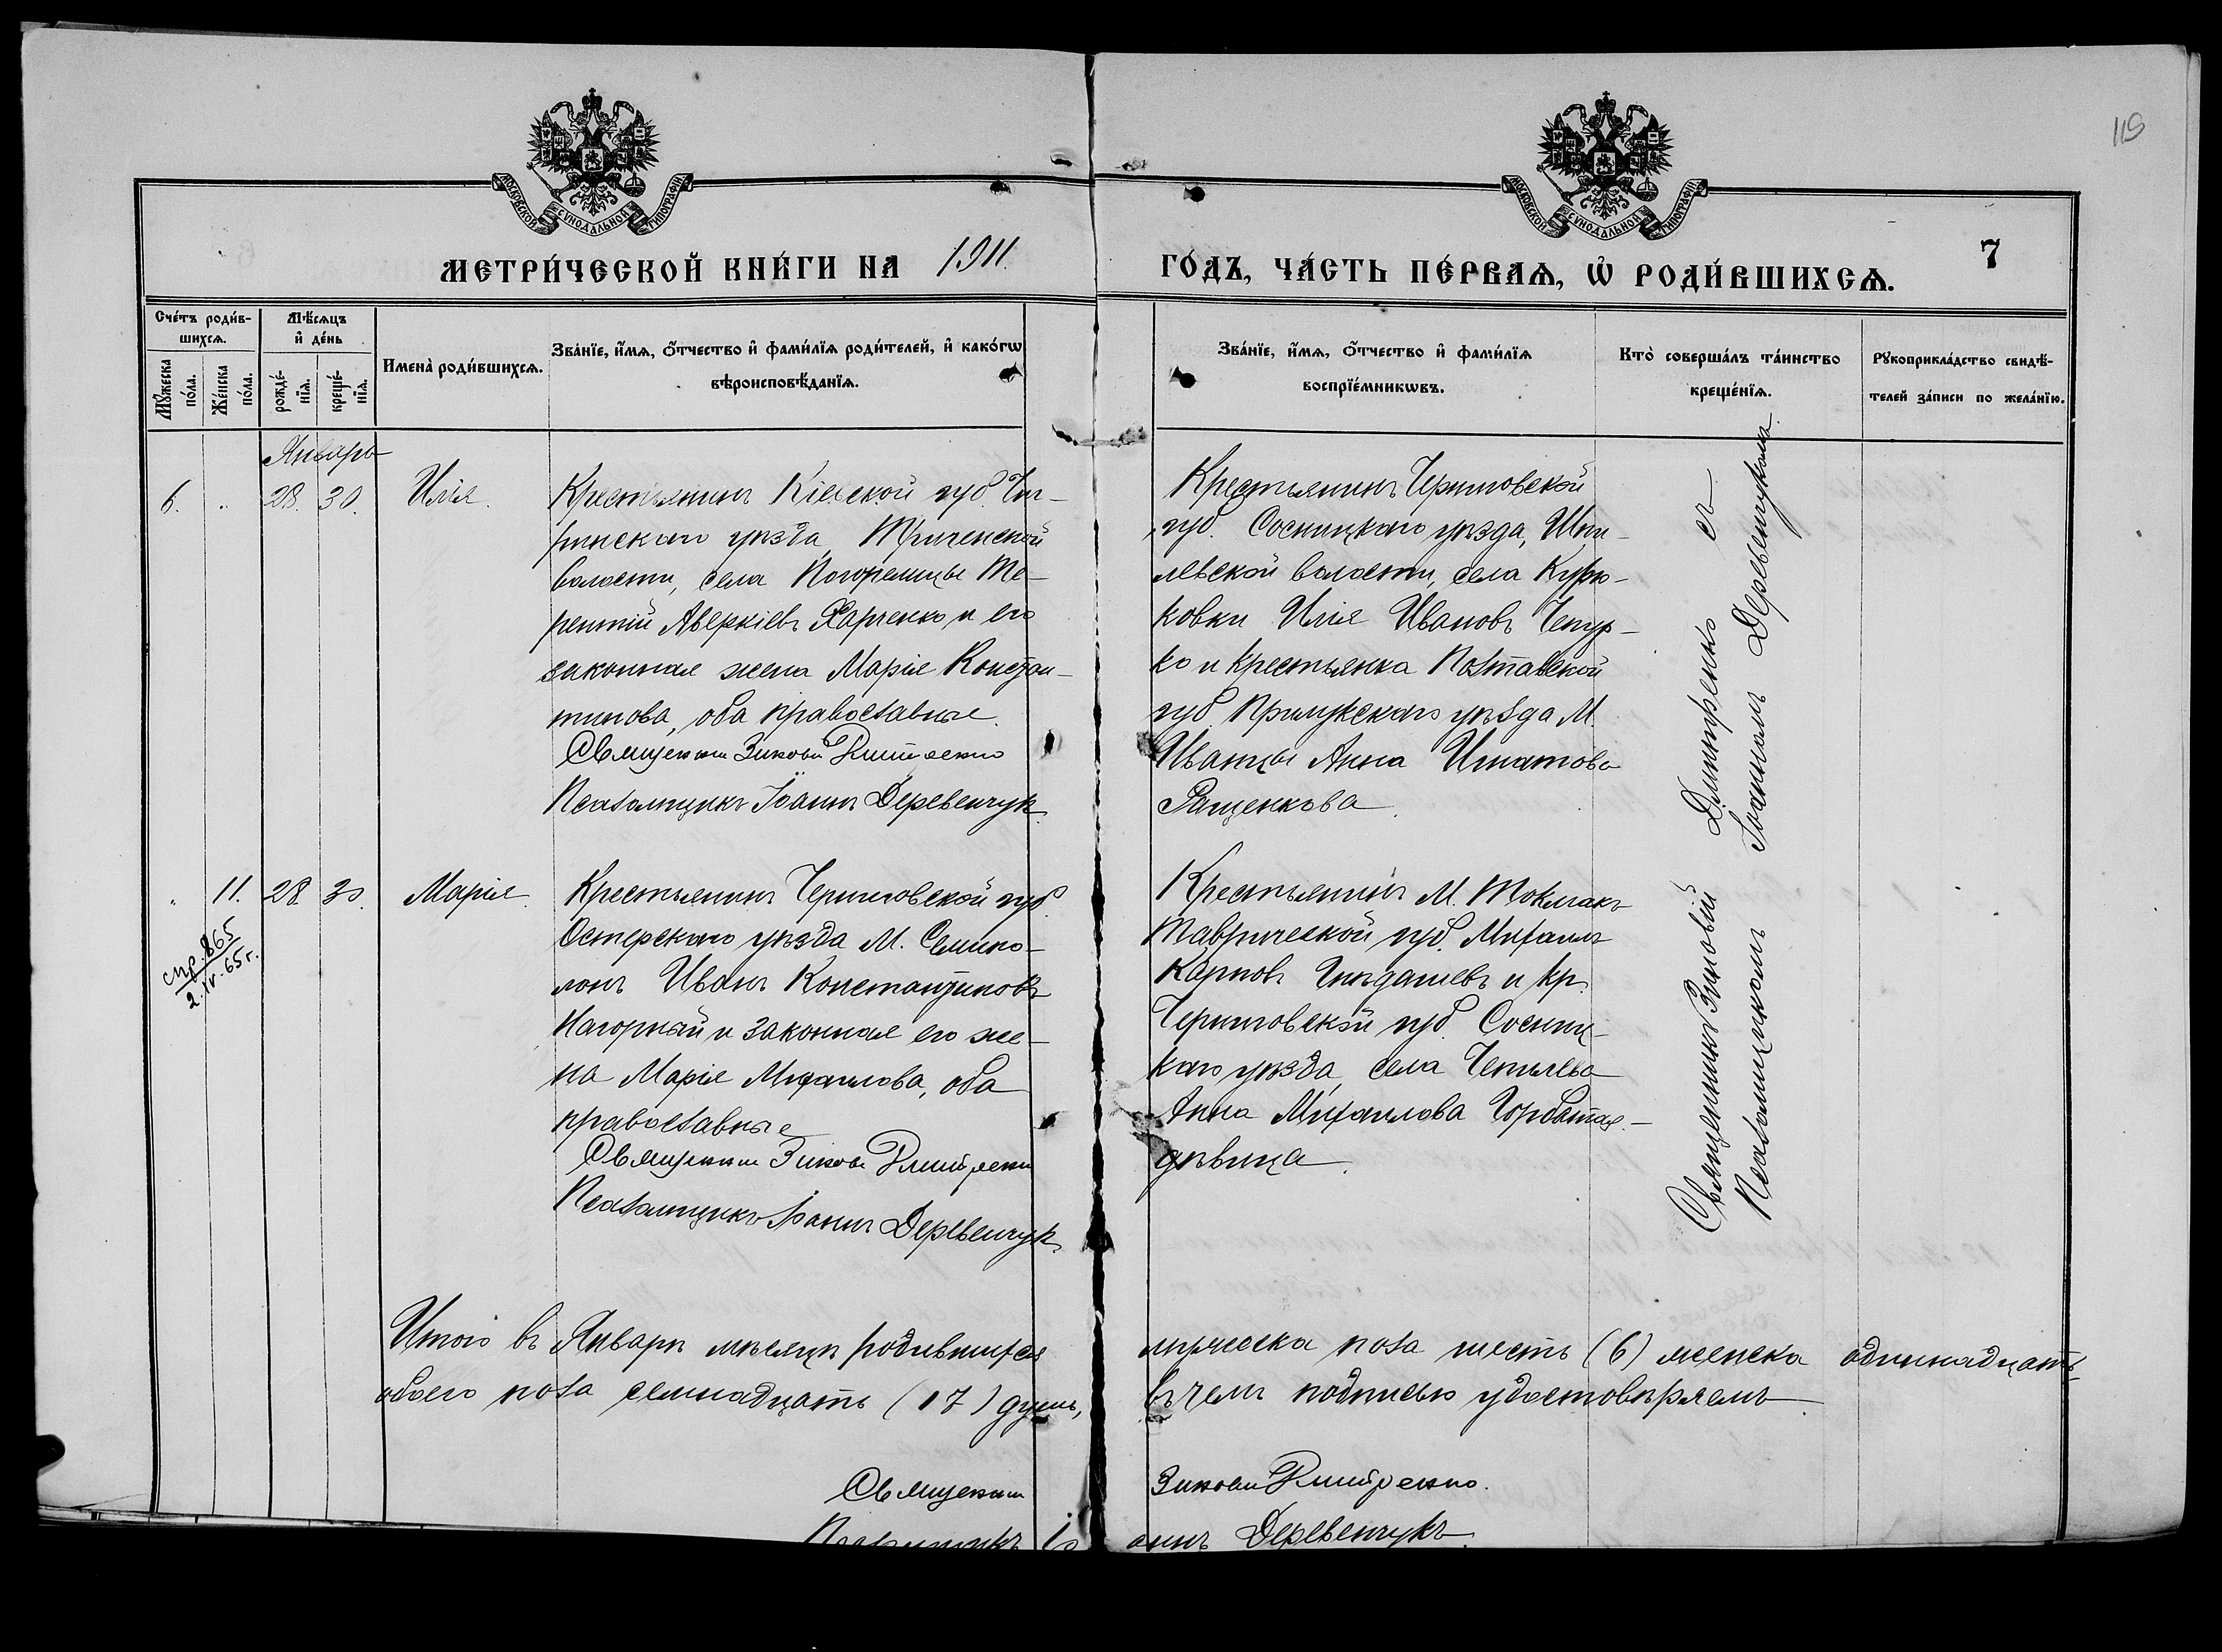 119
МОСКОВСКОЙ СѴНОДАЛЬНОЙ ТИПОГРАФІИ
МОСКОВСКОЙ СѴНОДАЛЬНОЙ ТИПОГРАФІИ
МЕТРИ́ЧЕСКОЙ КНИ́ГИ НА 1911. ГО́ДЪ, ЧА́СТЬ ПЕ́РВАѦ, Ѡ҆ РОДИ́ВШИХСѦ.
7
Сче́тъ роди́в-
шихсѧ.
Мꙋ́жеска по́ла.
Же́нска по́ла.
Мѣ́сѧцъ
и҆ де́нь
рожде́-нїѧ.
креще́-нїѧ.
Имена̀ роди́вшихсѧ.
Зва́нїе, и҆́мѧ, ѻ҆́тчество и҆ фами́лїѧ роди́телей, и҆ како́гѡ
вѣроисповѣ́данїѧ.
Зва́нїе, и҆́мѧ, ѻ҆́тчество и҆ фами́лїѧ
воспрїе́мникѡвъ.
Кто̀ соверша́лъ та́инство
креще́нїѧ.
Рꙋкоприкла́дство свидѣ́-
телей за́писи по жела́нїю.
Январь
6. " 28. 30. Илія.
Крестьянинъ Кіевской губ. Чиг-
ринскаго уѣзда,
волости, села Погорелицы Те-
рентій Аверкіевъ Харченко и его
законная жена Марія Констан-
тинова, оба православные.
Священник Зиновий Дмитренко
Псаломщикъ Іоаннъ Деревенчук.
Крестьянинъ Черниговской
губ. Сосницкаго уѣзда,
левской волости, села Курю-
ковки Илія Ивановъ Чепур-
ко и крестьянка Полтавской
губ. Прилукскаго уѣзда М.
Иваницы Анна Игнатова
Ращенкова.
" 11. 28. 30. Марія.
спр. 865
2.IV.65 г.
Крестьянинъ Черниговской губ.
Остерскаго уѣзда М. Семипо-
локъ Иванъ Константиновъ
Нагорный и законная его же-
на Марія Михаилова, оба
православные
Священник Зиновий Дмитренко
Псаломщикъ Іоаннъ Деревенчук.
Крестьянинъ М. Токмакъ
Таврической губ. Михаилъ
Карповъ и кр.
Черниговской губ. Сосниц-
каго уѣзда, села
Анна Михаилова Горбатая -
дѣвица.
Священникъ Зиновій Дмитренко съ
Псаломщикомъ Іоанномъ Деревенчукомъ.
Итого въ Январѣ мѣсяцѣ родившихся мужеска пола шесть (6) женска одиннадцать
обоего пола семнадцать (17) душъ, въ чемъ подписью удостовѣряемъ
Священник Зиновий Дмитренко.
Псаломщикъ Іоаннъ Деревенчукъ.